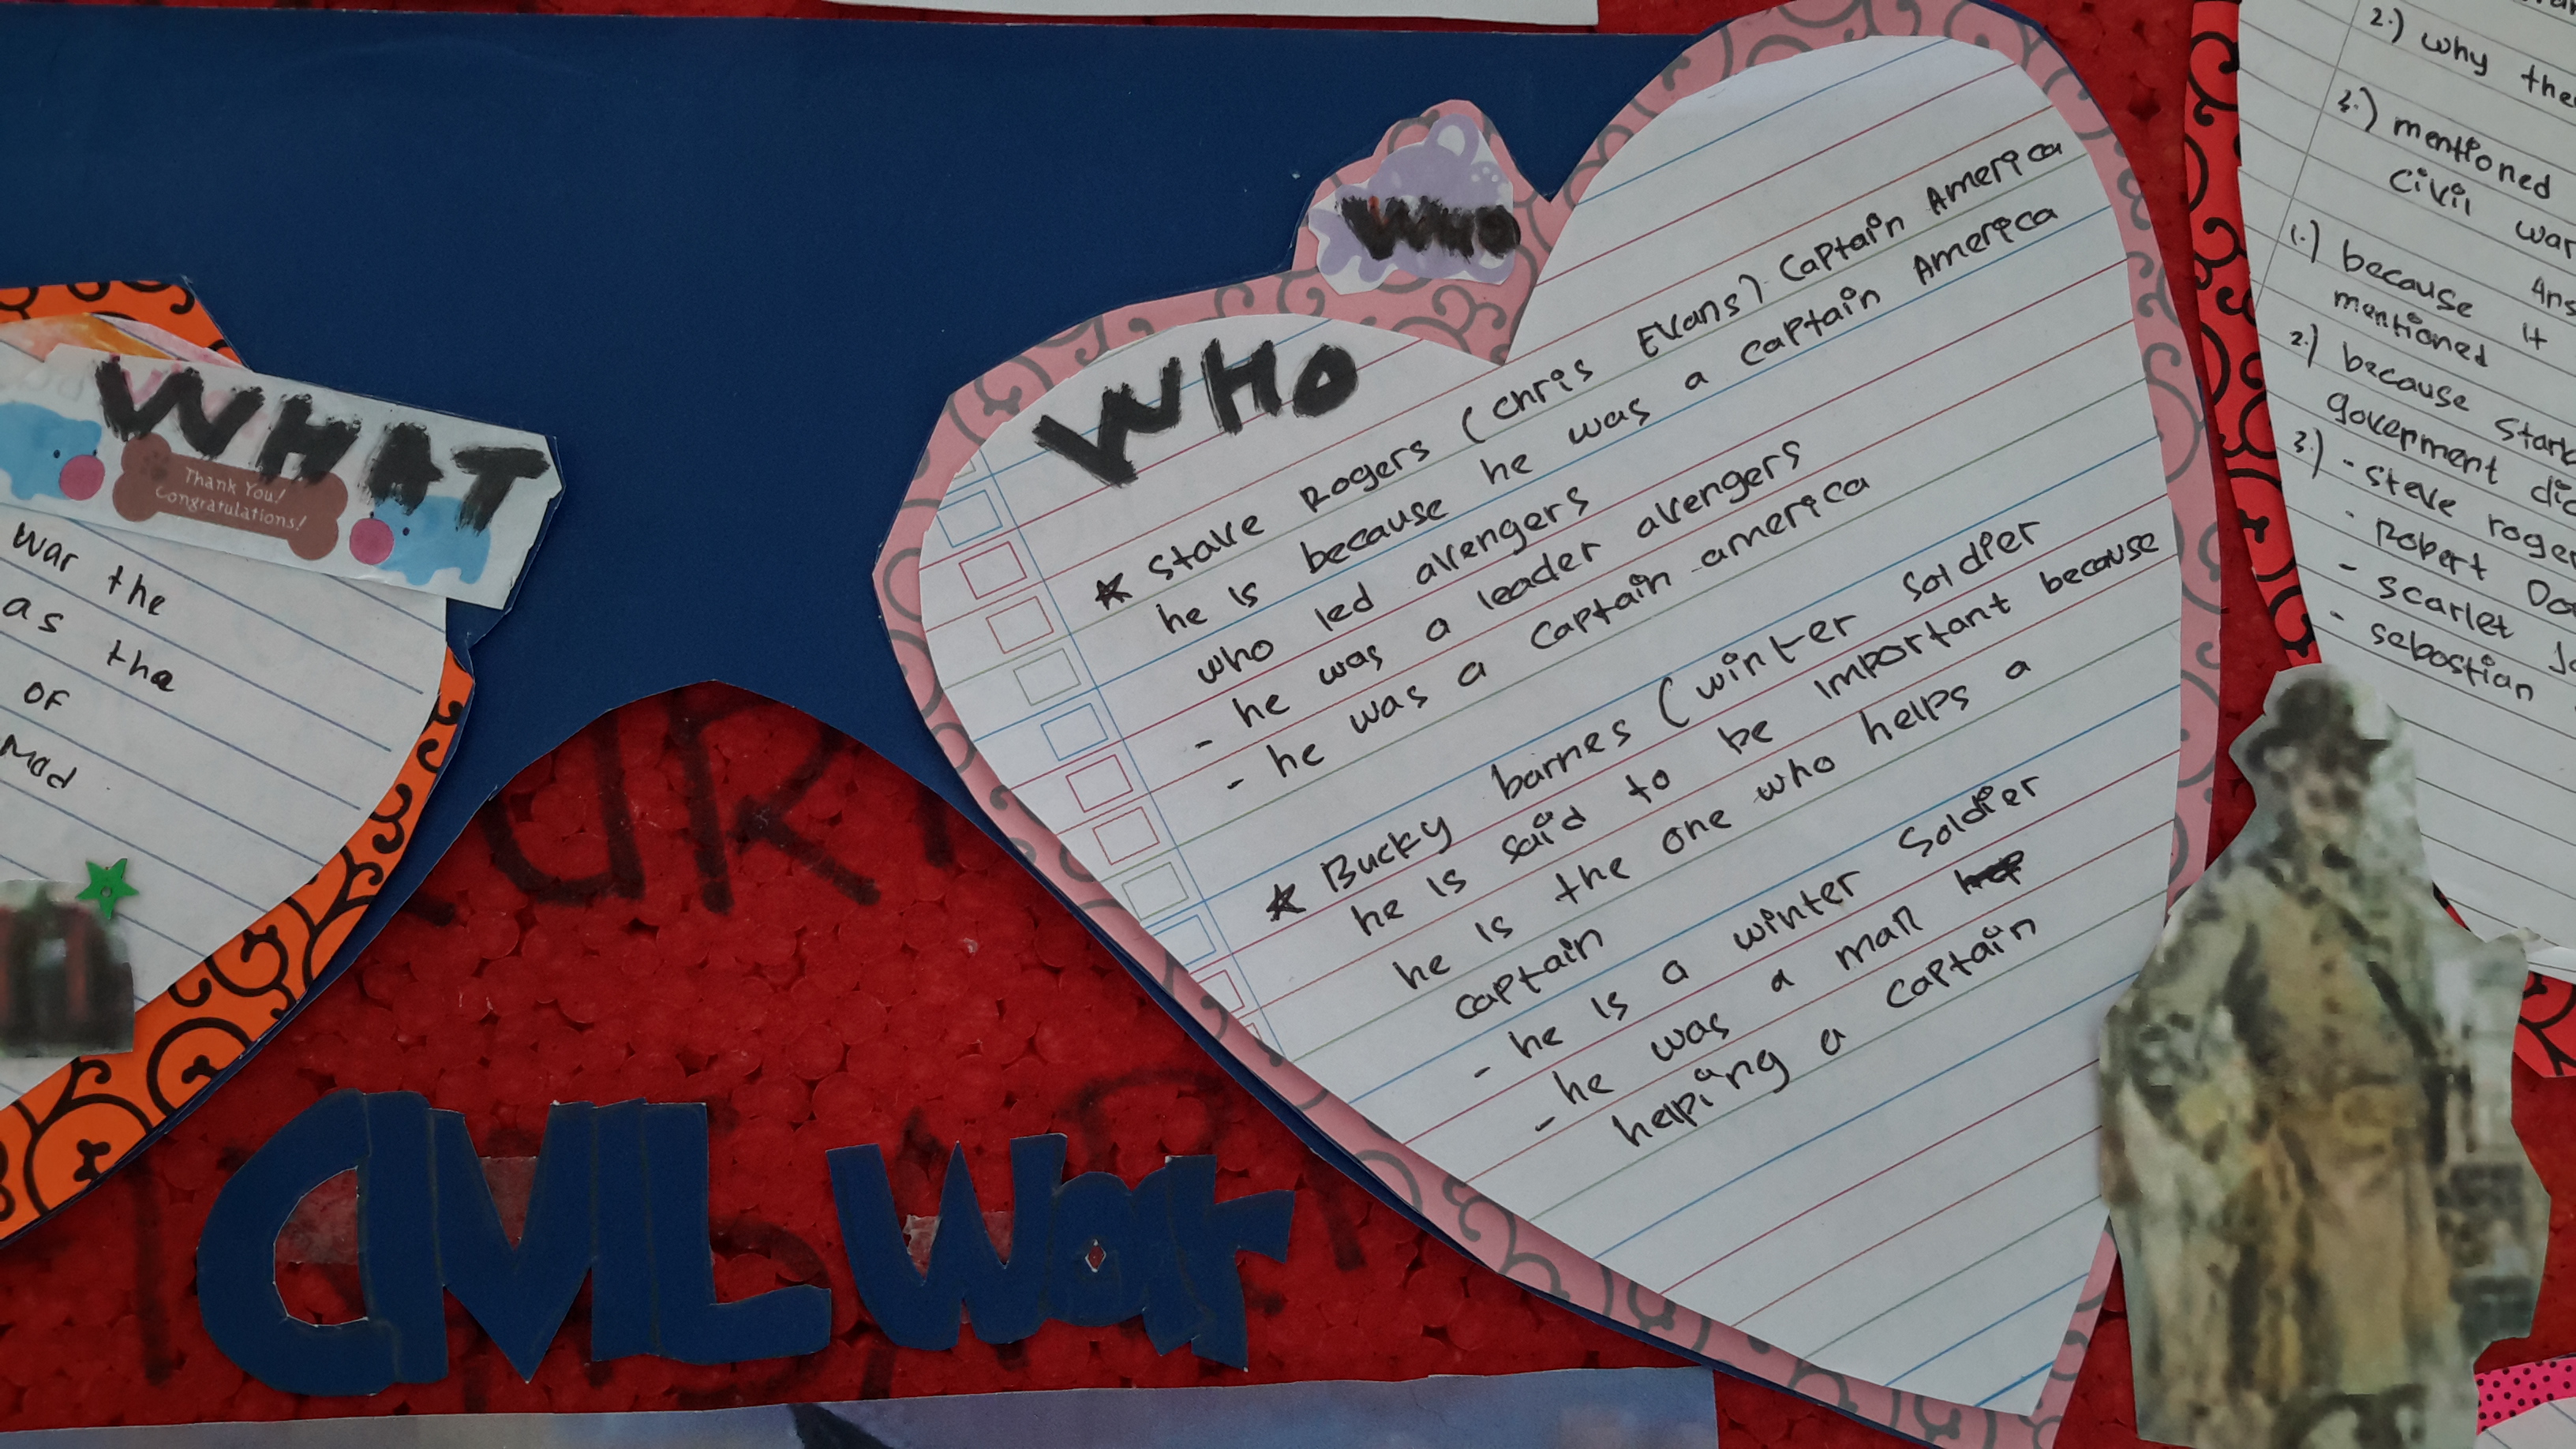 WHAT
Thank You!
Congratulations!
war the
as the
OF
Mad
WHO
WHO
★ Stave Rogers (Chris Evans) Captain America
he is because he was a captain America
who led avengers
- he was a leader avengers
- he was a captain america
★ Bucky barnes (winter Soldier
he is said to be important because
he is the one who helps a
captain
- he is a winter Soldier
- he was a man
helping a captain
CIVIL War
2.) why the
3.) mentioned
Civil war
Ans
1.) because it
mentioned
2.) because Stark
government
3.) - Steve roge
- Robert Do
- Scarlet Jo
- sebastian